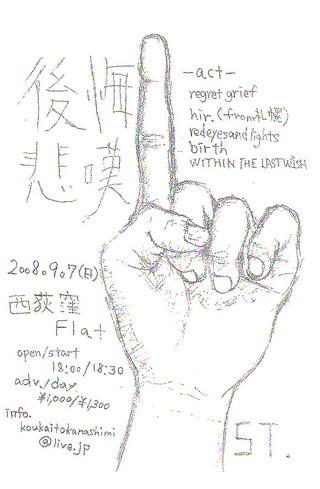 後悔
悲嘆
-act-
regret grief
hir. (from札幌)
redeyesandlights
birth
WITHIN THE LAST WISH
2008.9.07(日)
西荻窪
Flat
open/start
18:00/18:30
adv./day
¥1,000/¥1,300
info.
koukaitokanashimi
@live.jp
ST.